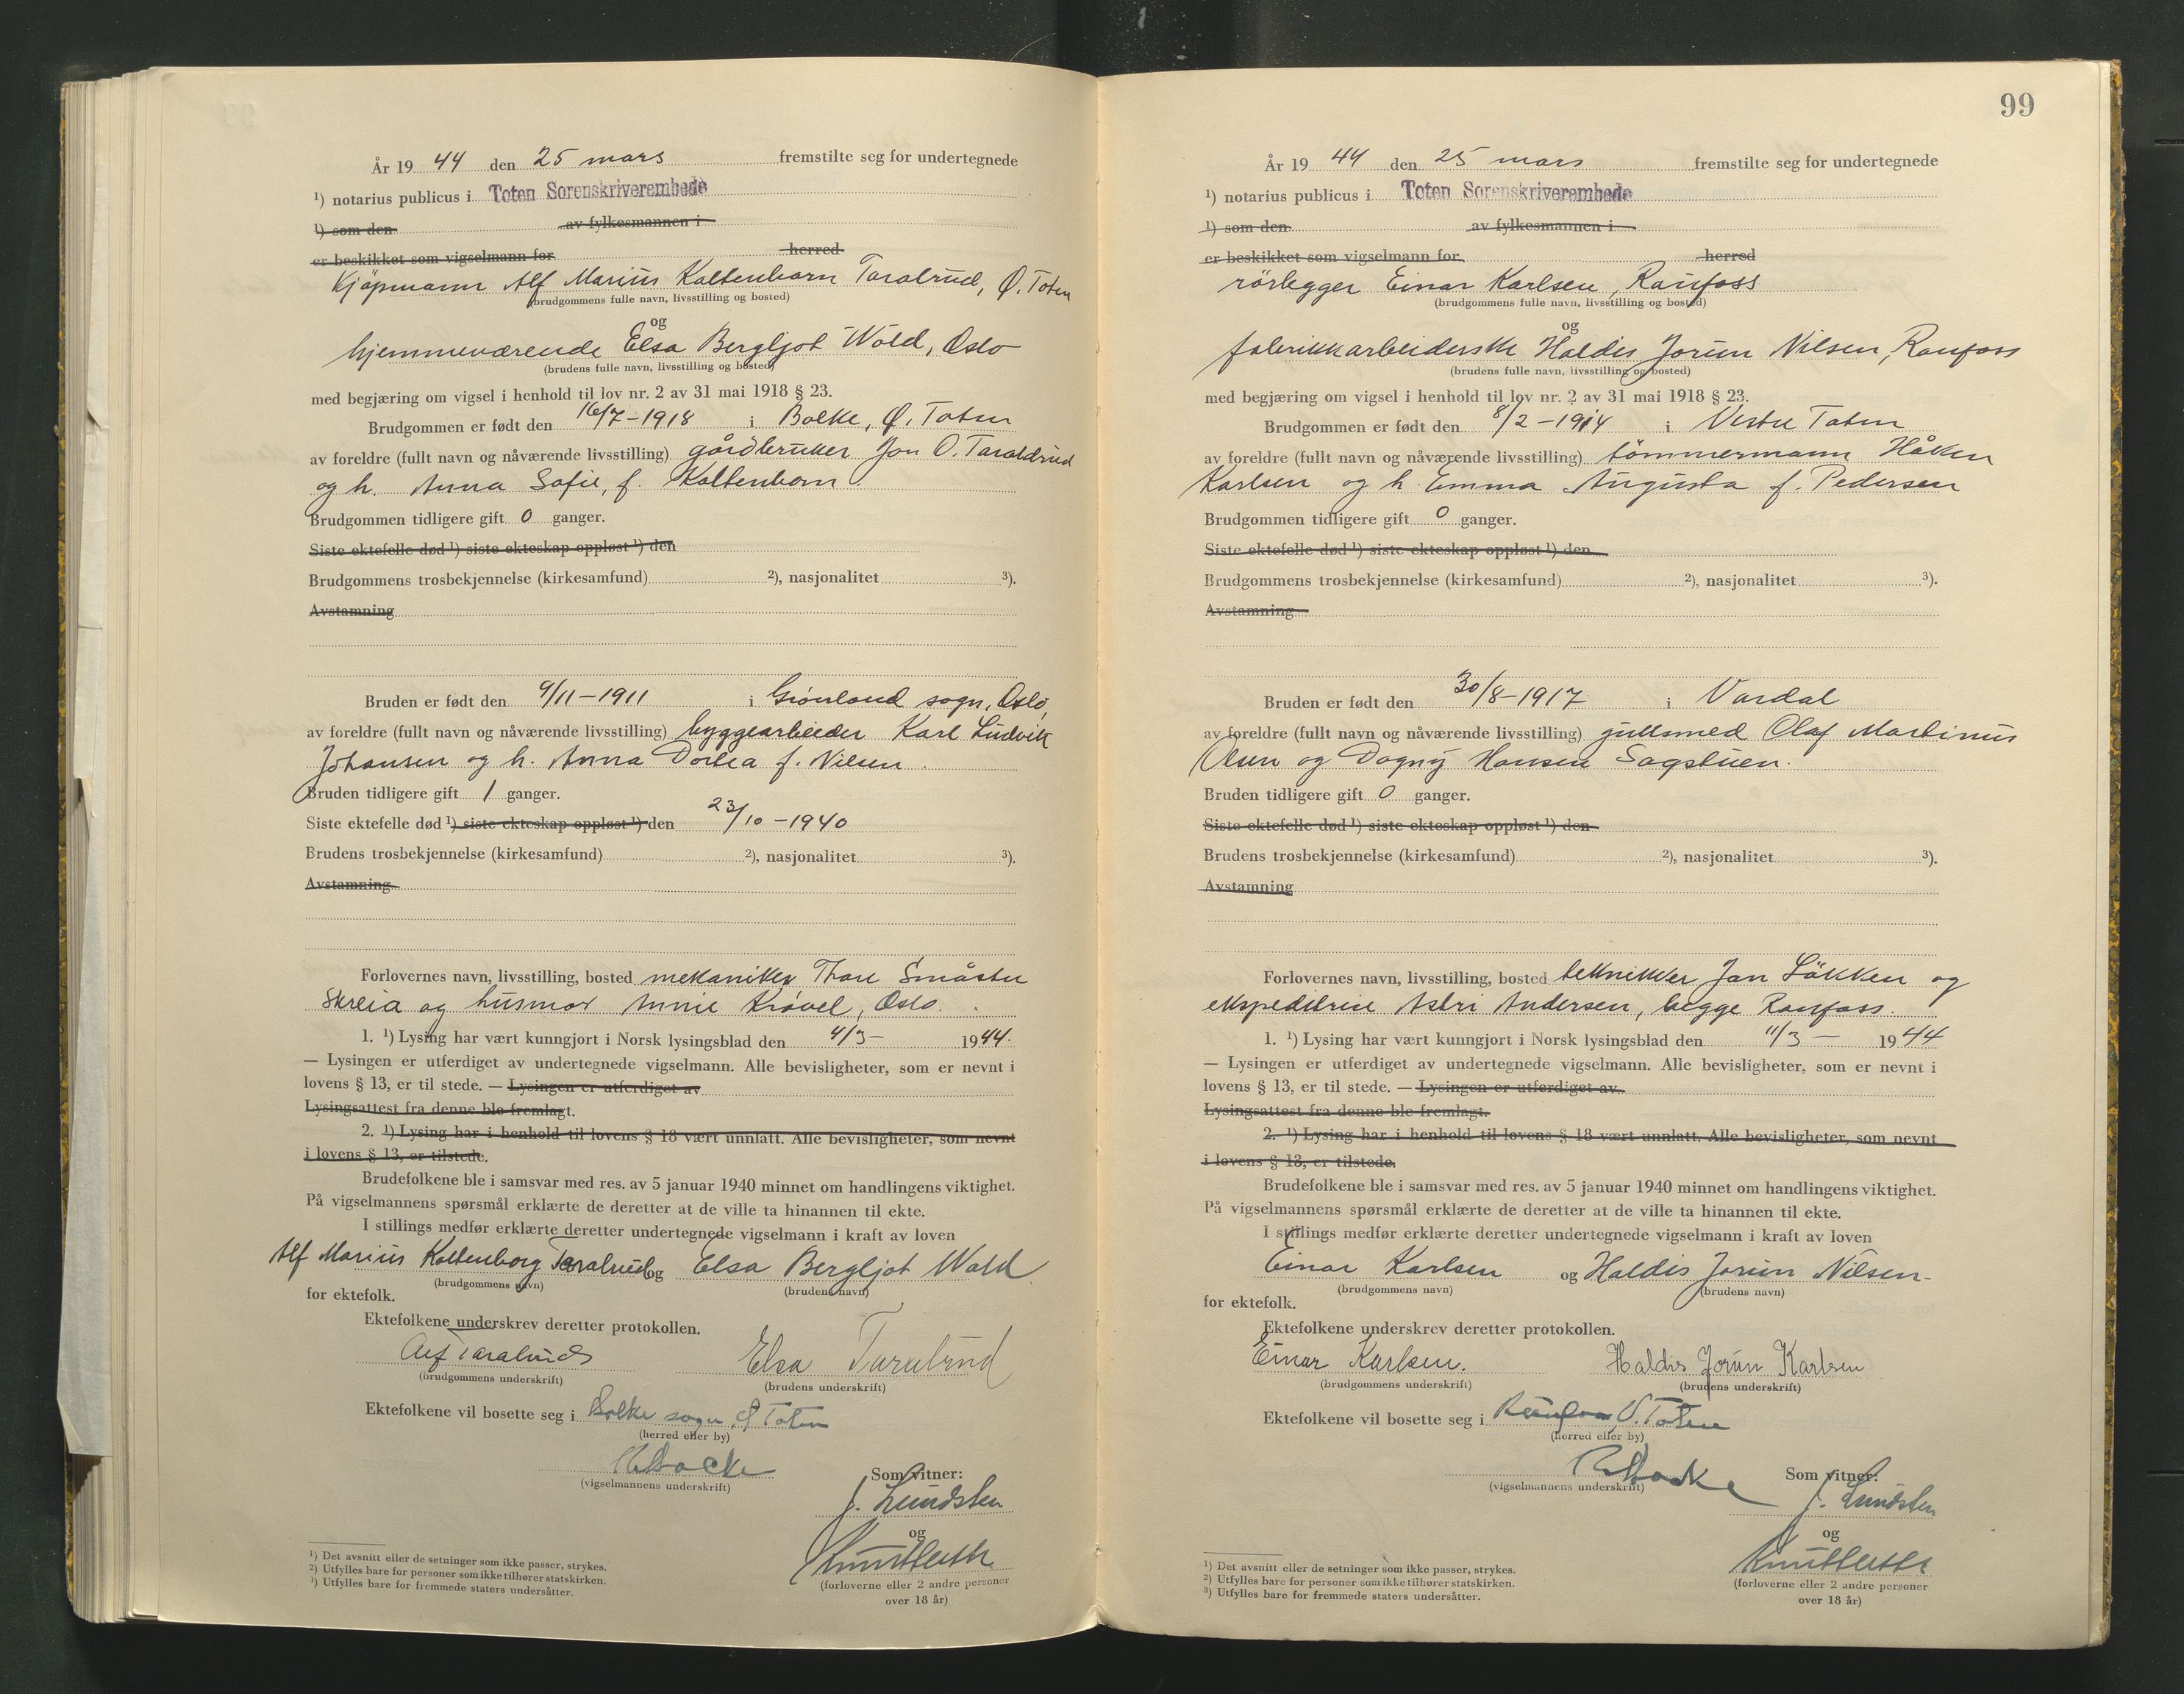 År 19 44 den 25 mars fremstilte seg for undertegnede
¹) notarius publicus i Toten Sorenskriverembede
¹) som den av fylkesmannen i
er beskikket som vigselmann for herred
Kjøpmann Alf Marius Kaltenborn Taralrud, Ø. Toten
(brudgommens fulle navn, livsstilling og bosted)
og
hjemmeværende Elsa Bergljot Wold, Oslo
(brudens fulle navn, livsstilling og bosted)
med begjæring om vigsel i henhold til lov nr. 2 av 31 mai 1918 § 23.
Brudgommen er født den 16/7-1918 i Balke, Ø. Toten
av foreldre (fullt navn og nåværende livsstilling) gårdbruker Jon O. Taraldrud
og h. Anna Sofie, f. Kaltenborn
Brudgommen tidligere gift 0 ganger.
Siste ektefelle død ¹) siste ekteskap oppløst ¹) den
Brudgommens trosbekjennelse (kirkesamfund) ²), nasjonalitet ³).
Avstamning
Bruden er født den 9/11-1911 i Grønland sogn, Oslo,
av foreldre (fullt navn og nåværende livsstilling) byggearbeider Karl Ludvik
Johansen og h. Anna Dortea f. Nilsen.
Bruden tidligere gift 1 ganger.
Siste ektefelle død ¹) siste ekteskap oppløst ¹) den 23/10-1940
Brudens trosbekjennelse (kirkesamfund) ²), nasjonalitet ³).
Avstamning
Forlovernes navn, livsstilling, bosted mekaniker Thore Småstu
Skreia og husmor Annie Krøvel, Oslo.
1. ¹) Lysing har vært kunngjort i Norsk lysingsblad den 4/3- 1944.
— Lysingen er utferdiget av undertegnede vigselmann. Alle bevisligheter, som er nevnt i
lovens § 13, er til stede. — Lysingen er utferdiget av
Lysingsattest fra denne ble fremlagt.
2. ¹) Lysing har i henhold til lovens § 18 vært unnlatt. Alle bevisligheter, som nevnt
i lovens § 13, er tilstede.
Brudefolkene ble i samsvar med res. av 5 januar 1940 minnet om handlingens viktighet.
På vigselmannens spørsmål erklærte de deretter at de ville ta hinannen til ekte.
I stillings medfør erklærte deretter undertegnede vigselmann i kraft av loven
Alf Marius Kaltenborg Taralrud og Elsa Bergljot Wold
(brudgommens navn) (brudens navn)
for ektefolk.
Ektefolkene underskrev deretter protokollen.
Alf Taralrud Elsa Taralrud
(brudgommens underskrift) (brudens underskrift)
Ektefolkene vil bosette seg i Balke sogn, Ø Toten
(herred eller by)
(vigselmannens underskrift)
Som vitner:
J. Lundsten
og
(forloverne eller 2 andre personer
over 18 år)
¹) Det avsnitt eller de setninger som ikke passer, strykes.
²) Utfylles bare for personer som ikke tilhører statskirken.
³) Utfylles bare for fremmede staters undersåtter.
99
År 19 44 den 25 mars fremstilte seg for undertegnede
¹) notarius publicus i Toten Sorenskriverembede
¹) som den av fylkesmannen i
er beskikket som vigselmann for herred
rørlegger Einar Karlsen, Raufoss
(brudgommens fulle navn, livsstilling og bosted)
og
fabrikkarbeiderske Haldis Jorun Nilsen, Raufoss
(brudens fulle navn, livsstilling og bosted)
med begjæring om vigsel i henhold til lov nr. 2 av 31 mai 1918 § 23.
Brudgommen er født den 8/2-1914 i Vestre Toten
av foreldre (fullt navn og nåværende livsstilling) tømmermann Håken
Karlsen og h. Emma Augusta f. Pedersen
Brudgommen tidligere gift 0 ganger.
Siste ektefelle død ¹) siste ekteskap oppløst ¹) den
Brudgommens trosbekjennelse (kirkesamfund) ²), nasjonalitet ³).
Avstamning
Bruden er født den 30/8-1917 i Vardal
av foreldre (fullt navn og nåværende livsstilling) gullsmed Olaf Martinus
Olsen og Dagny Hansen Sagstuen.
Bruden tidligere gift 0 ganger.
Siste ektefelle død ¹) siste ekteskap oppløst ¹) den
Brudens trosbekjennelse (kirkesamfund) ²), nasjonalitet ³).
Avstamning
Forlovernes navn, livsstilling, bosted tekniker Jan Løkken og
ekspeditrise Astri Andersen, begge Raufoss.
1. ¹) Lysing har vært kunngjort i Norsk lysingsblad den 11/3 - 1944
— Lysingen er utferdiget av undertegnede vigselmann. Alle bevisligheter, som er nevnt i
lovens § 13, er til stede. — Lysingen er utferdiget av
Lysingsattest fra denne ble fremlagt.
2. ¹) Lysing har i henhold til lovens § 18 vært unnlatt. Alle bevisligheter, som nevnt
i lovens § 13, er tilstede.
Brudefolkene ble i samsvar med res. av 5 januar 1940 minnet om handlingens viktighet.
På vigselmannens spørsmål erklærte de deretter at de ville ta hinannen til ekte.
I stillings medfør erklærte deretter undertegnede vigselmann i kraft av loven
Einar Karlsen og Haldis Jorun Nilsen.
(brudgommens navn) (brudens navn)
for ektefolk.
Ektefolkene underskrev deretter protokollen.
Einar Karlsen. Haldis Jorun Karlsen
(brudgommens underskrift) (brudens underskrift)
Ektefolkene vil bosette seg i Raufoss V. Toten
(herred eller by)
(vigselmannens underskrift)
Som vitner:
J. Lundsten
og
(forloverne eller 2 andre personer
over 18 år)
¹) Det avsnitt eller de setninger som ikke passer, strykes.
²) Utfylles bare for personer som ikke tilhører statskirken.
³) Utfylles bare for fremmede staters undersåtter.